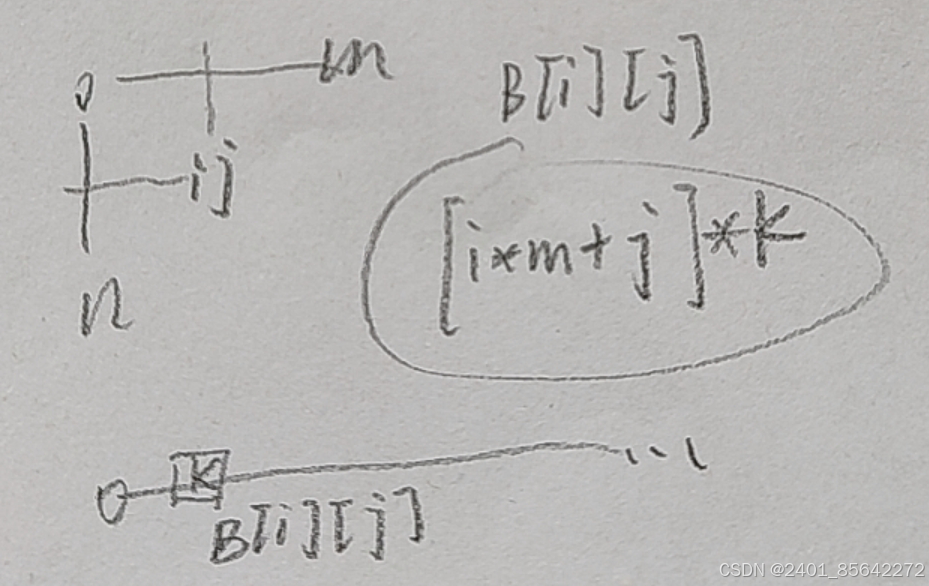 0 m
B[i][j]
ij
[i*m+j]*k
n
0 K ...
B[i][j]
CSDN @2401_85642272